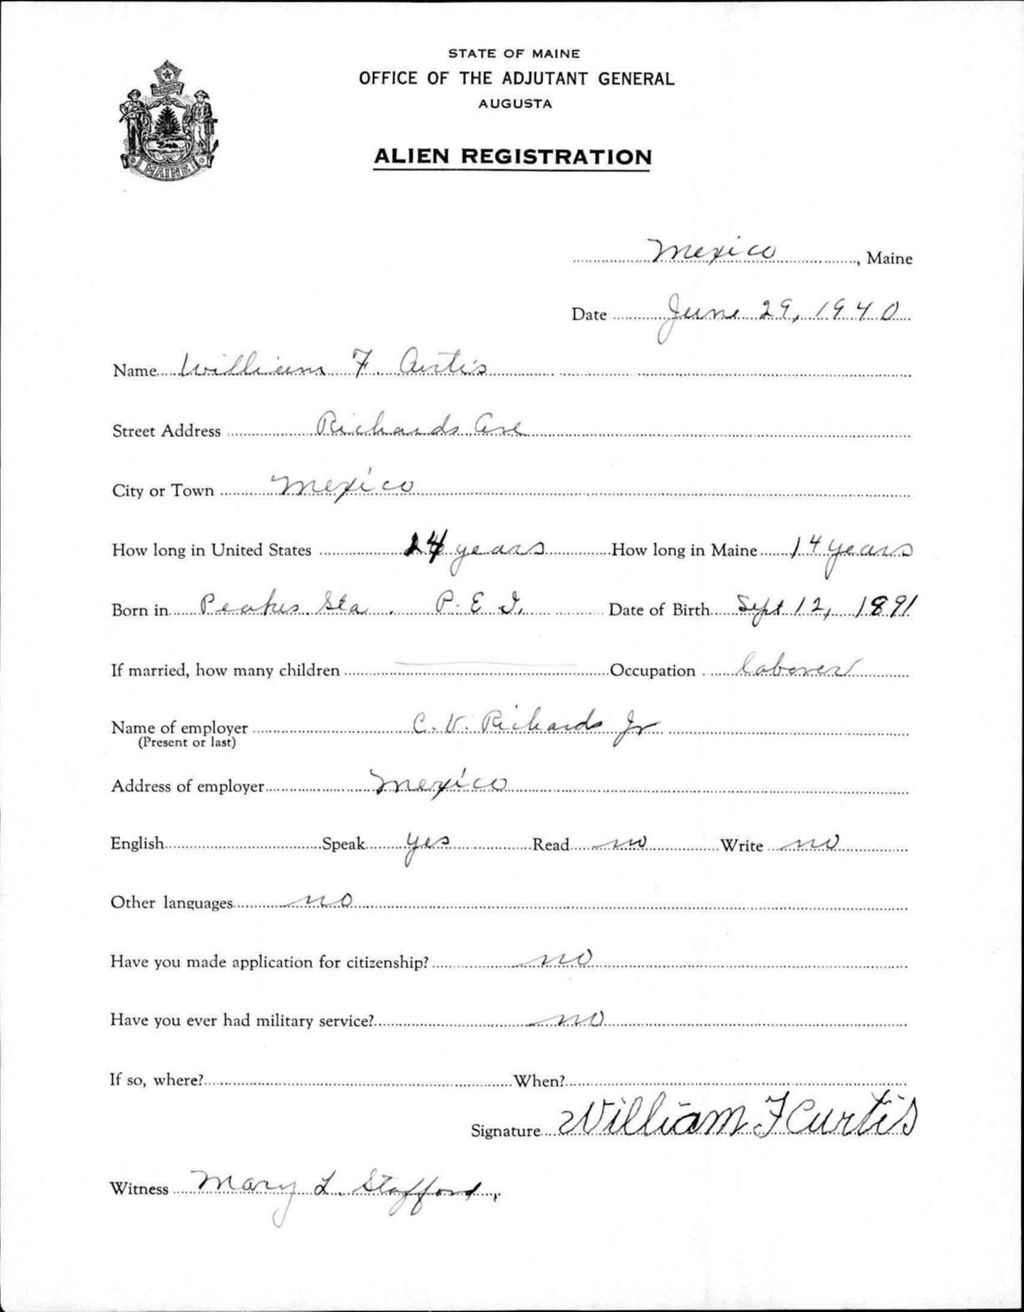 STATE OF MAINE
OFFICE OF THE ADJUTANT GENERAL
AUGUSTA
ALIEN REGISTRATION
MAINE
Mexico, Maine
Date June 29, 1940
Name William F. Curtis
Street Address Richards Ave
City or Town Mexico
How long in United States 14 years How long in Maine 14 years
Born in Peakes Sta. P. E. I. Date of Birth Sept 12, 1891
If married, how many children Occupation laborer
Name of employer C. V. Richards Jr
(Present or last)
Address of employer Mexico
English Speak yes Read no Write no
Other languages no
Have you made application for citizenship? no
Have you ever had military service? no
If so, where? When?
Signature William F Curtis
Witness Mary L. Stafford,